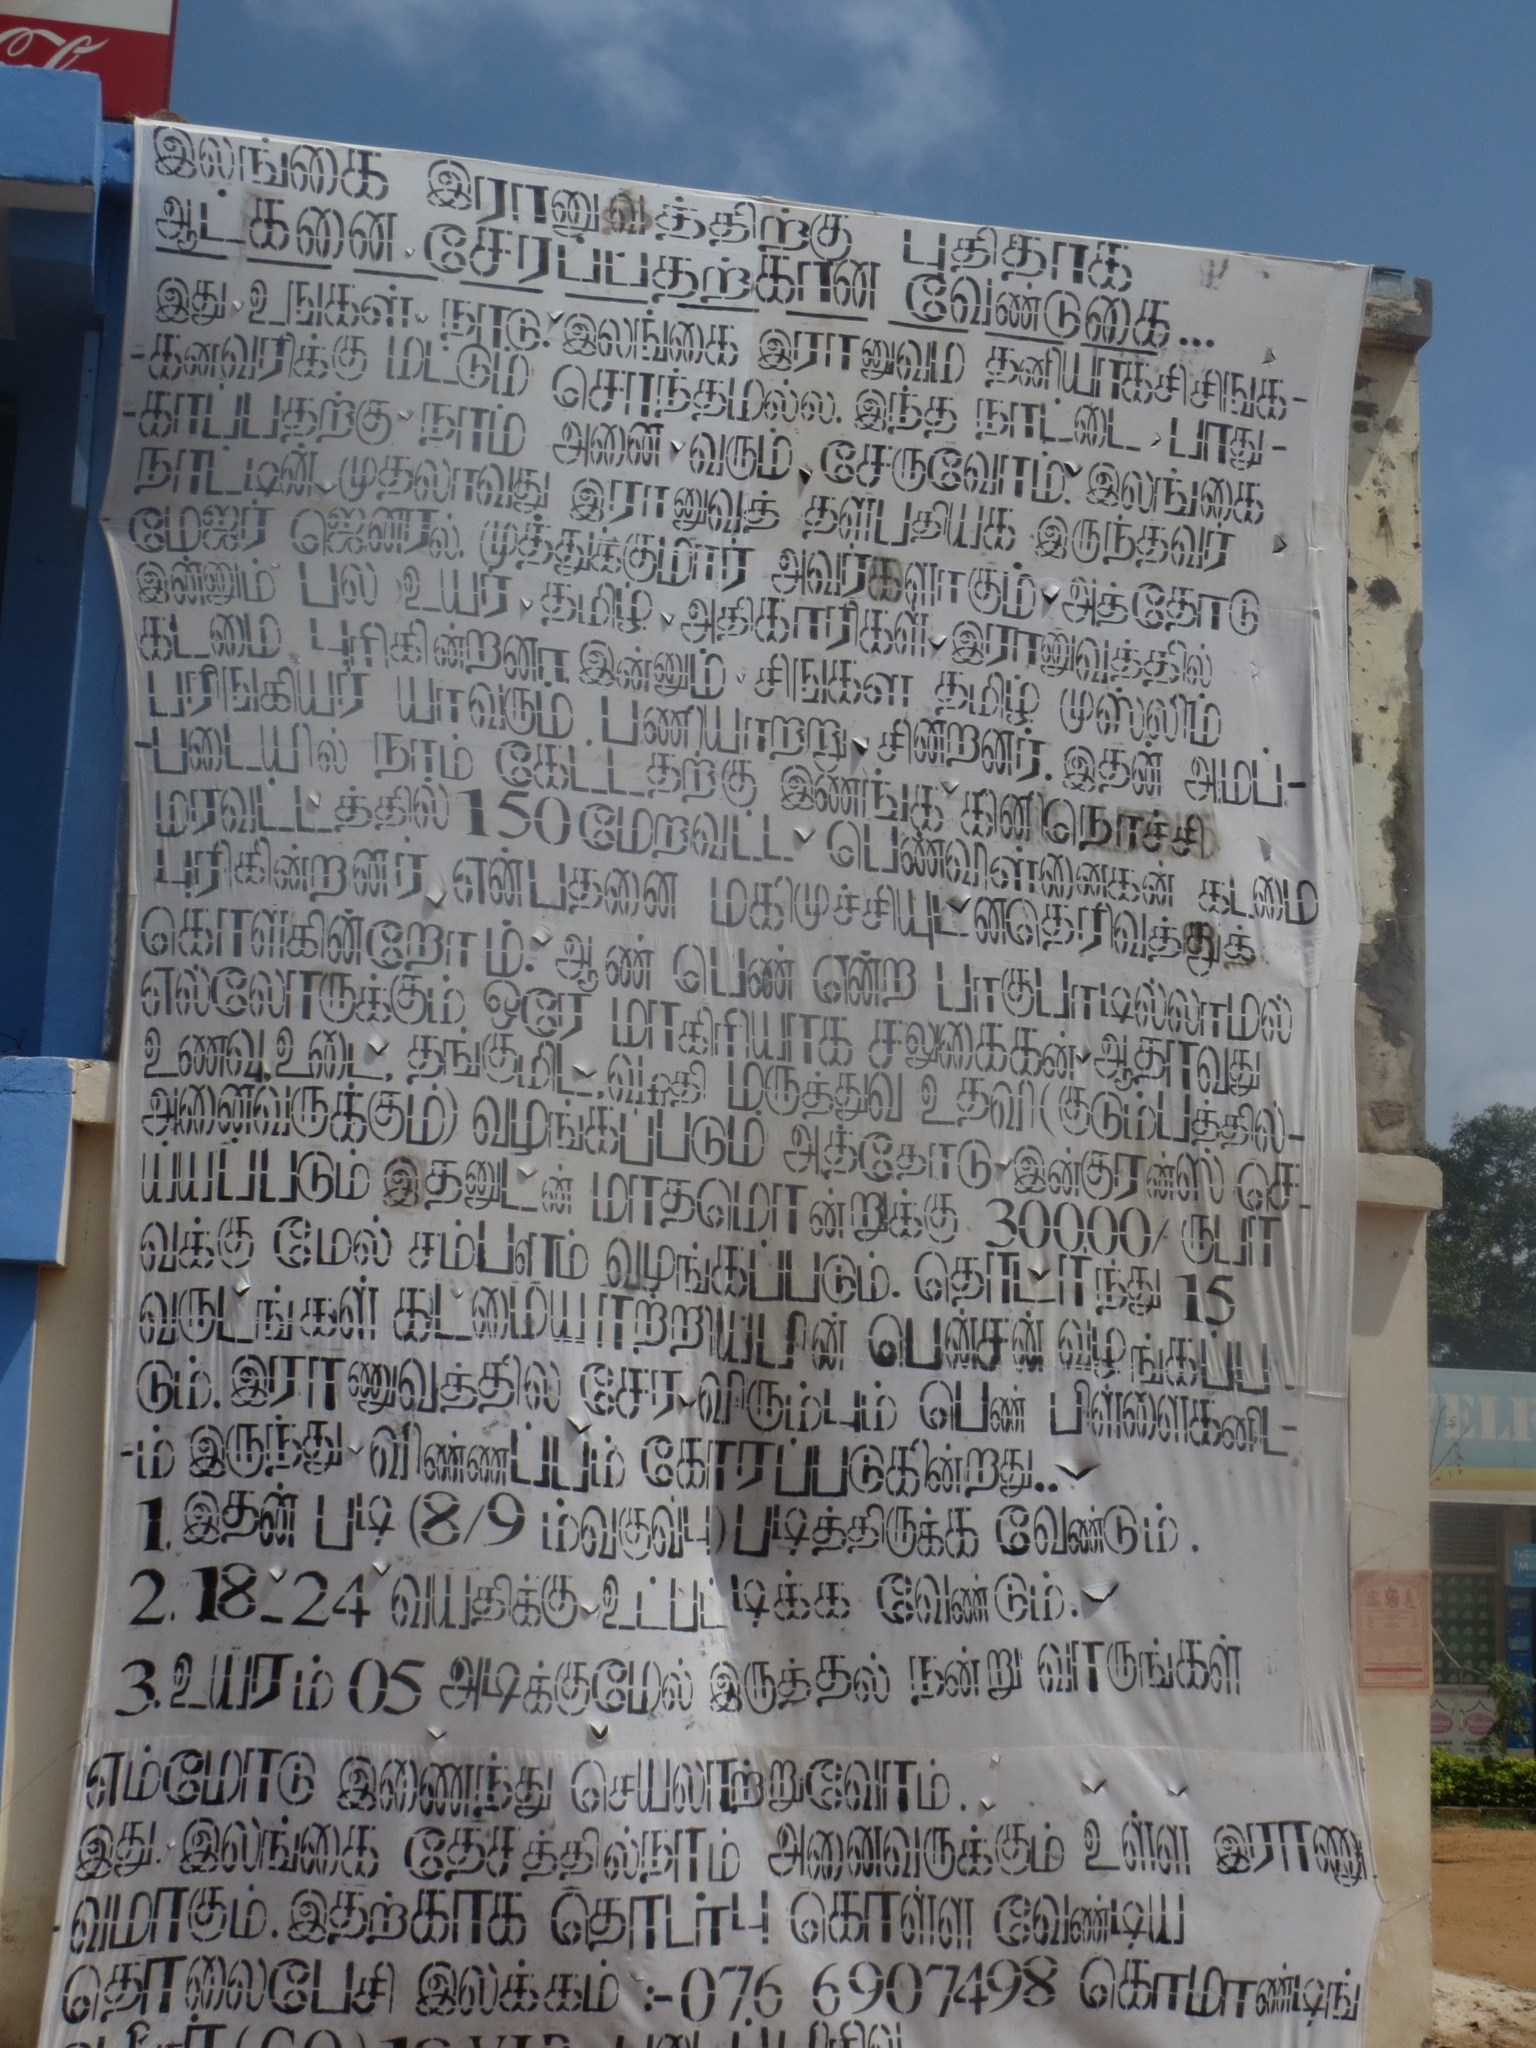 இலங்கை இராணுவத்திற்கு புதிதாக
ஆட்களை சேர்ப்பதற்கான வேண்டுகை...
இது உங்கள் நாடு. இலங்கை இராணுவம தனியாகசிசிங்க-
-களவரிக்கு மட்டும் சொந்தமல்ல. இந்த நாட்டை பாது-
-காப்பதற்கு நாம் அனைவரும் சேருவோம். இலங்கை
நாட்டின் முதலாவது இராணுவத் தளபதியக இருந்தவர்
மேஜர் ஜெனரல். முத்துக்குமார் அவர்களாகும் அத்தோடு
இன்னும் பல உயர் தமிழ் அதிகாரிகள் இராணுவத்தில்
கடமை புரிகின்றனர். இன்னும் சிங்கள தமிழ் முஸ்லிம்
பரிங்கியர் யாவரும் பணியாற்று சின்றனர். இதன் அமப்-
-படையில் நாம் கேட்டதற்கு இணங்க கிளிநொச்சி
மாவட்டத்தில் 150 மேறவட்ட பெண்விள்ளைகள் கடமை
புரிகின்றனர் என்பதனை மகிமுச்சியுடன்தெரிவத்துக்
கொள்கின்றோம். ஆண் பெண் என்ற பாகுபாடில்லாமல்
எல்லோருக்கும் ஒரே மாகிரியாக சலுகைகள் ஆதாவது
உணவு, உடை, தங்குமிட வசதி மருத்துவ உதவி (குடும்பத்தில்-
அனைவருக்கும்) வழங்கப்படும் அத்தோடு இன்சூரன்ஸ் செ-
ய்யப்படும் இதனுடன் மாதமொன்றுக்கு 30000/- ருபா
வக்கு மேல் சம்பளம் வழங்கப்படும். தொடர்ந்து 15
வருடங்கள் கடமையாற்றியபின் பென்சன் வழங்கப்ப
டும். இராணுவத்தில் சேர விரும்பும் பெண் பிள்ளைகளிட-
-ம் இருந்து விண்ணப்பம் கோரப்படுகின்றது..
1. இதன் படி (8/9 ம்வகுவ்பு) படித்திருக்க வேண்டும்.
2. 18-24 வயதிக்கு உட்பட்டிக்க வேண்டும்.
3. உயரம் 05 அடிக்குமேல் இருத்தல் நன்று வாருங்கள்
எம்மோடு இணைந்து செயலாற்றுவோம்.
இது இலங்கை தேசத்தில்நாம் அனைவருக்கும் உள்ள இராணு
-வமாகும். இதற்காக தொடர்பு கொள்ள வேண்டிய
தொலைபேசி இலக்கம் :- 076 6907498 கொமாண்டிங்
(CO)